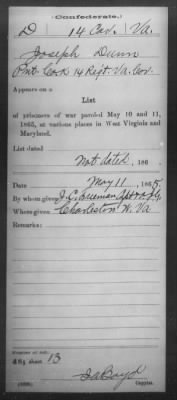 (Confederate.)
D 14 Cav. Va.
Joseph Dunn
Pvt. Co D 14 Regt. Va. Cav.
Appears on a
List
of prisoners of war paroled May 10 and 11,
1865, at various places in West Virginia and
Maryland.
List dated
Not dated, 186 .
Date May 11, 1865.
By whom given J. C.
Where given Charleston W. Va
Remarks:
Number of roll:
sheet 13
Boyd
Copyist.